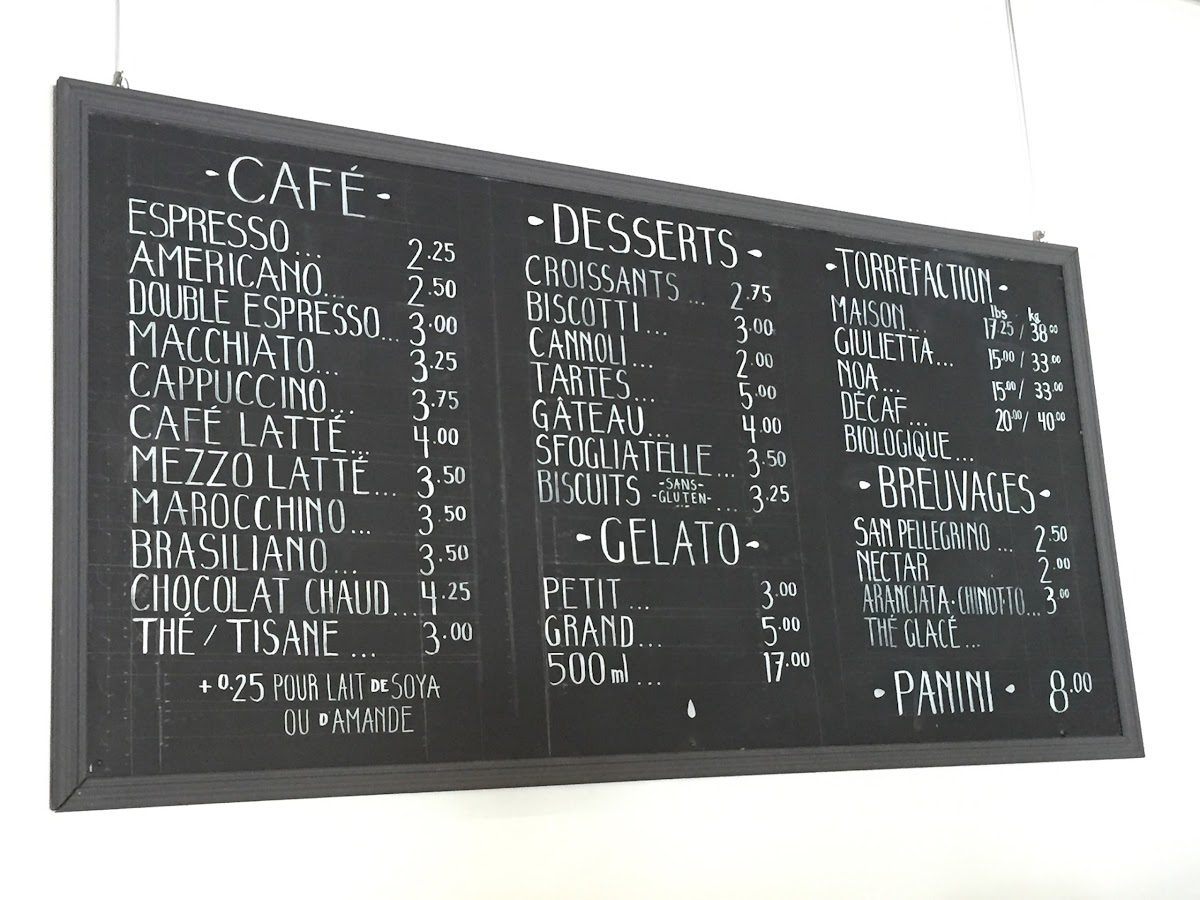 -CAFÉ-
ESPRESSO... 2.25
AMERICANO... 2.50
DOUBLE ESPRESSO... 3.00
MACCHIATO... 3.25
CAPPUCCINO... 3.75
CAFÉ LATTÉ... 4.00
MEZZO LATTÉ... 3.50
MAROCCHINO... 3.50
BRASILIANO... 3.50
CHOCOLAT CHAUD... 4.25
THÉ / TISANE ... 3.00
+0.25 POUR LAIT DE SOYA
OU D'AMANDE
-DESSERTS-
CROISSANTS... 2.75
BISCOTTI... 3.00
CANNOLI... 2.00
TARTES... 5.00
GÂTEAU... 4.00
SFOGLIATELLE... 3.50
BISCUITS -SANS-
-GLUTEN- ... 3.25
-GELATO-
PETIT ... 3.00
GRAND... 5.00
500 ml ... 17.00
-TORREFACTION-
lbs / kg
MAISON... 17.25 / 38.00
GIULIETTA... 15.00 / 33.00
NOA... 15.00 / 33.00
DÉCAF... 20.00 / 40.00
BIOLOGIQUE...
-BREUVAGES-
SAN PELLEGRINO ... 2.50
NECTAR 2.00
ARANCIATA·CHINOTTO... 3.00
THÉ GLACÉ...
-PANINI- 8.00